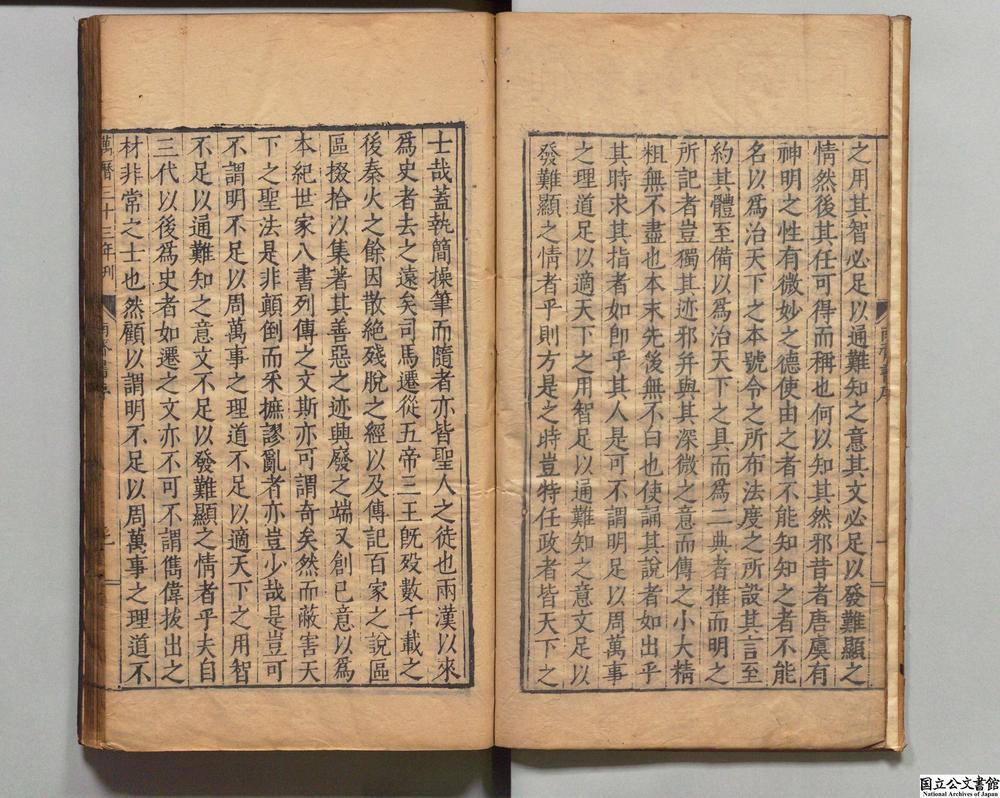 之用其智必足以通難知之意其文必足以發難顯之
情然後其任可得而稱也何以知其然邪昔者唐虞有
神明之性有微妙之德使由之者不能知知之者不能
名以爲治天下之本號令之所布法度之所設其言至
約其體至備以爲治天下之具而爲二典者推而明之
所記者豈獨其迹邪并與其深微之意而傳之小大精
粗無不盡也本末先後無不白也使誦其說者如出乎
其時求其指者如即乎其人是可不謂明足以周萬事
之理道足以適天下之用智足以通難知之意文足以
發難顯之情者乎則方是之時豈特任政者皆天下之
士哉蓋執簡操筆而隨者亦皆聖人之徒也兩漢以來
爲史者去之遠矣司馬遷從五帝三王旣歿數千載之
後秦火之餘因散絶殘脫之經以及傳記百家之說區
區掇拾以集著其善惡之迹興廢之端又創已意以爲
本紀世家八書列傳之文斯亦可謂奇矣然而蔽害天
下之聖法是非顛倒而釆摭謬亂者亦豈少哉是豈可
不謂明不足以周萬事之理道不足以適天下之用智
不足以通難知之意文不足以發難顯之情者乎夫自
三代以後爲史者如遷之文亦不可不謂雋偉拔出之
材非常之士也然顧以謂明不足以周萬事之理道不
萬曆三十三年刊
南齊書序
国立公文書館
National Archives of Japan